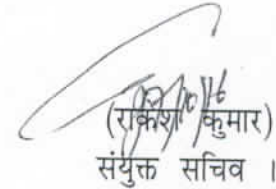 (राकेश कुमार)
संयुक्त सचिव ।